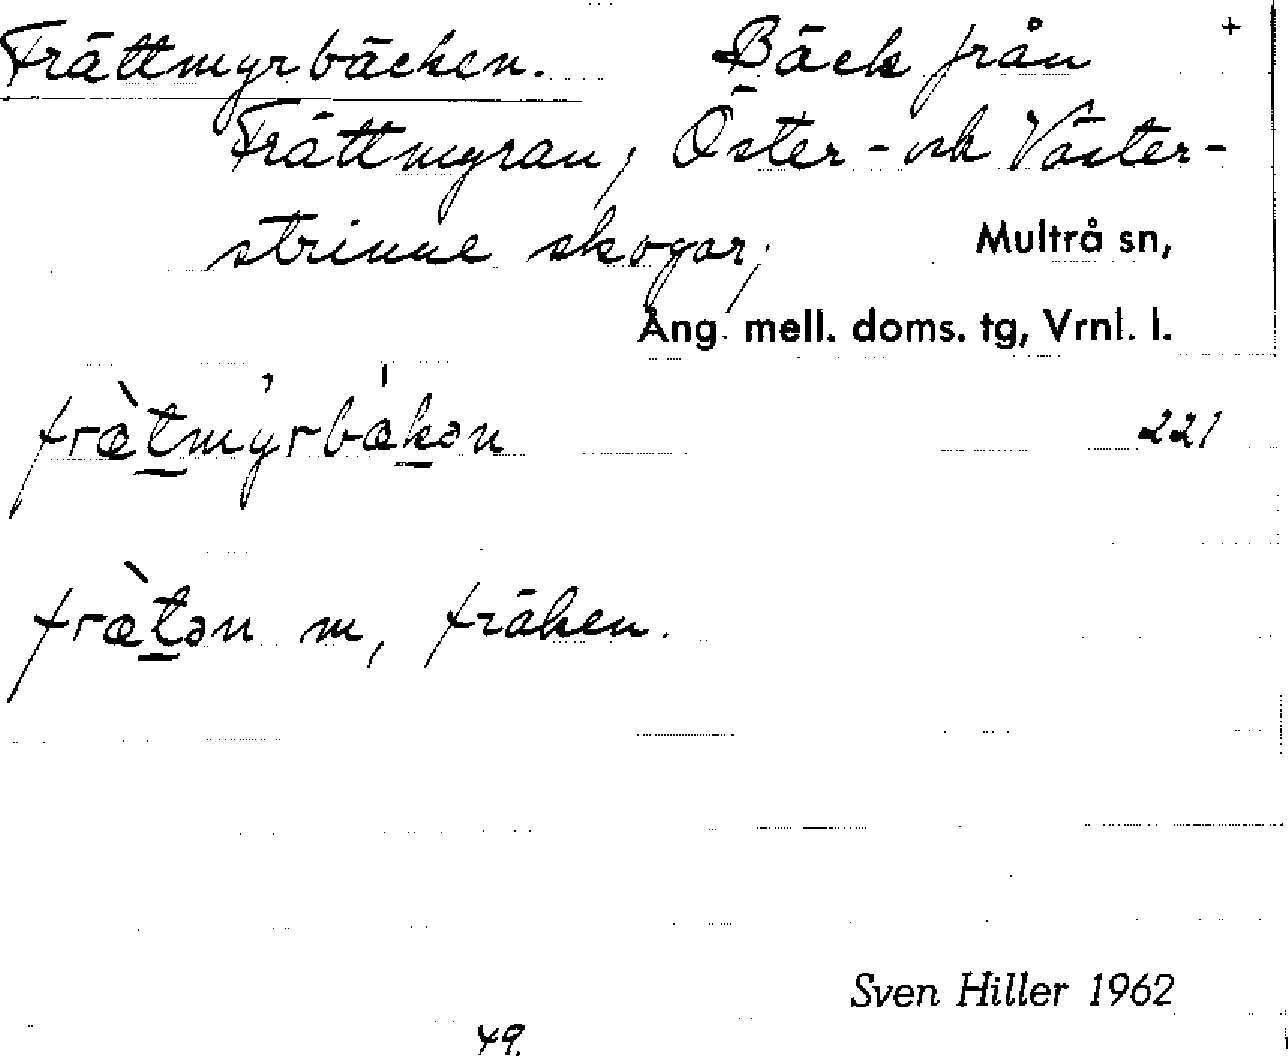 Frättmyrbäcken. Bäck från +
Frättmyran, Öster- och Väster-
strinne skogar; Multrå sn,
Ång. mell. doms. tg, Vrnl. l.
fræ̀tmy̓rbækən 221
fræ̀tən m, fräken.
Sven Hiller 1962
49.